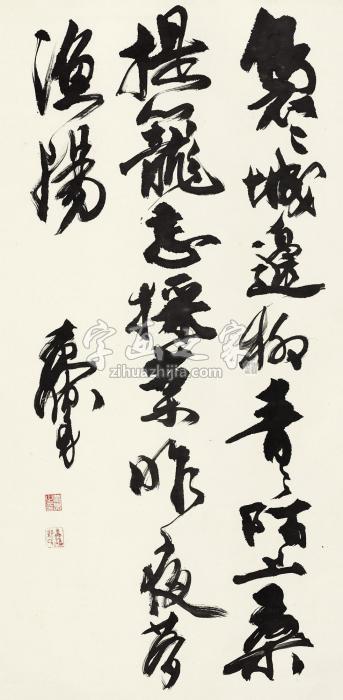 袅〻城边柳青〻陌上桑
提籠忘採葉昨夜夢
渔陽
字画之家
zihuazhijia.com